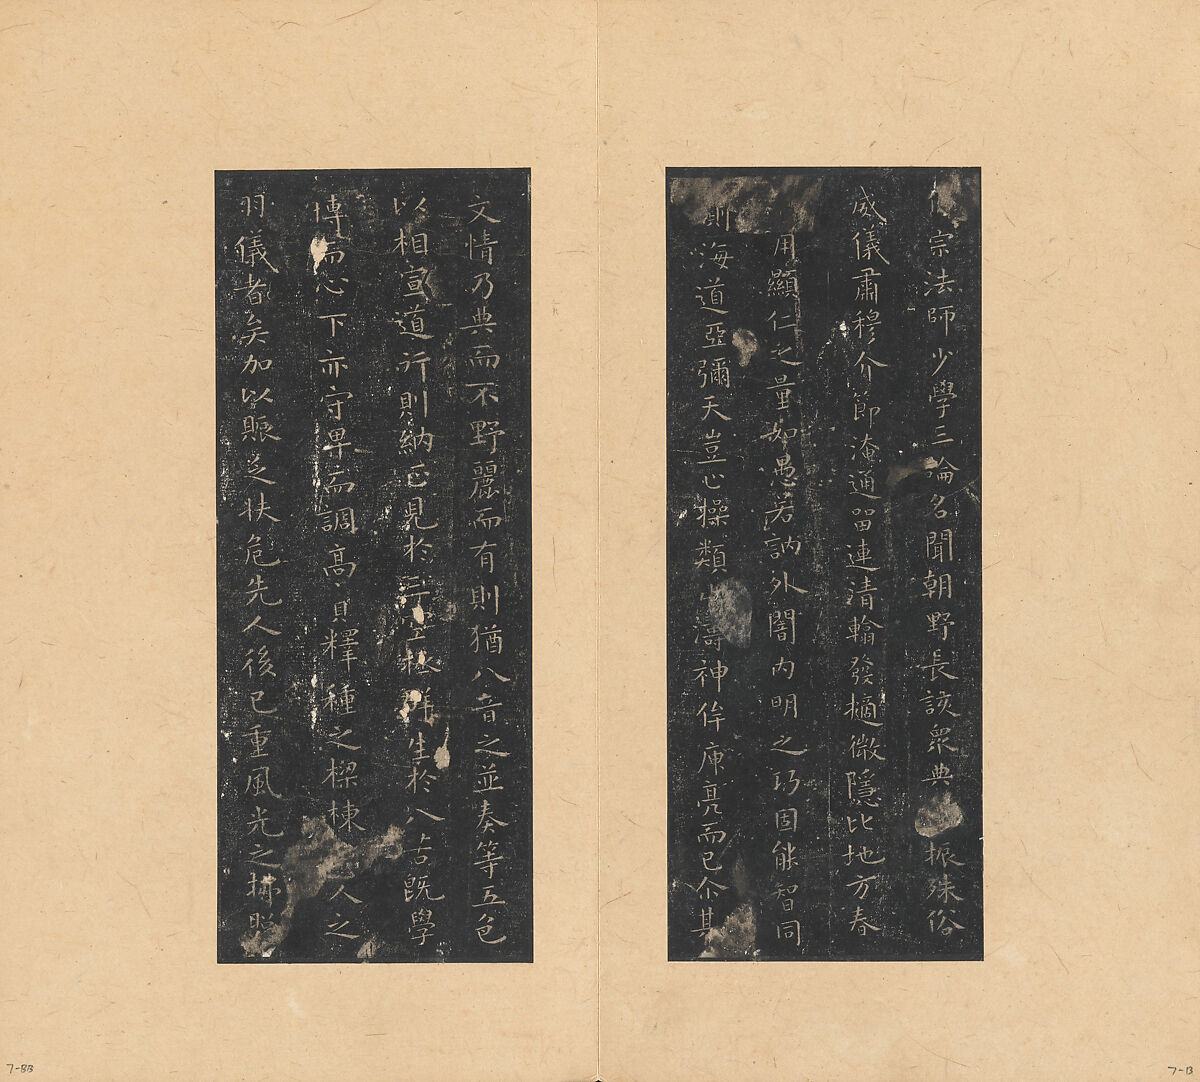 宗法師少學三論名聞朝野長該眾典振殊俗
威儀肅穆介節淹通留連清翰發擿微隱比地方春
用顯仁之量如愚若訥外闇內明之巧固能智同
則海道亞彌天豈止操類山濤神侔庾亮而已尒其
文情乃典而不野麗而有則猶八音之並奏等五色
以相宣道行則納正見於三空拯群生於八苦既學
博而心下亦守卑而調高寔釋種之樑棟人之
羽儀者矣加以賑乏扶危先人後己重風光之拂照
7-BB
7-B